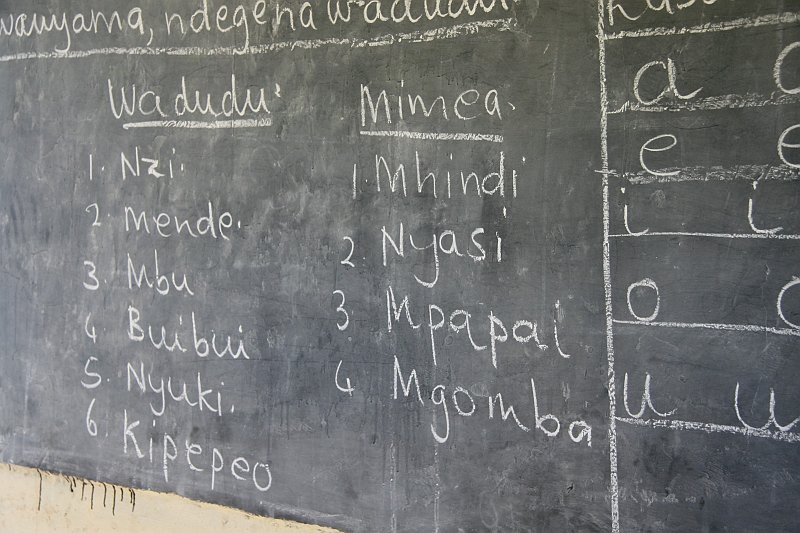 wanyama, ndege na wadudu
Wadudu
1. Nzi
2 mende.
3. Mbu
4 Buibui
5. Nyuki.
6. Kipepeo
Mimea.
1. Mhindi
2. Nyasi
3 Mpapai
4 Mgomba
a
e
e
i i
o
u u